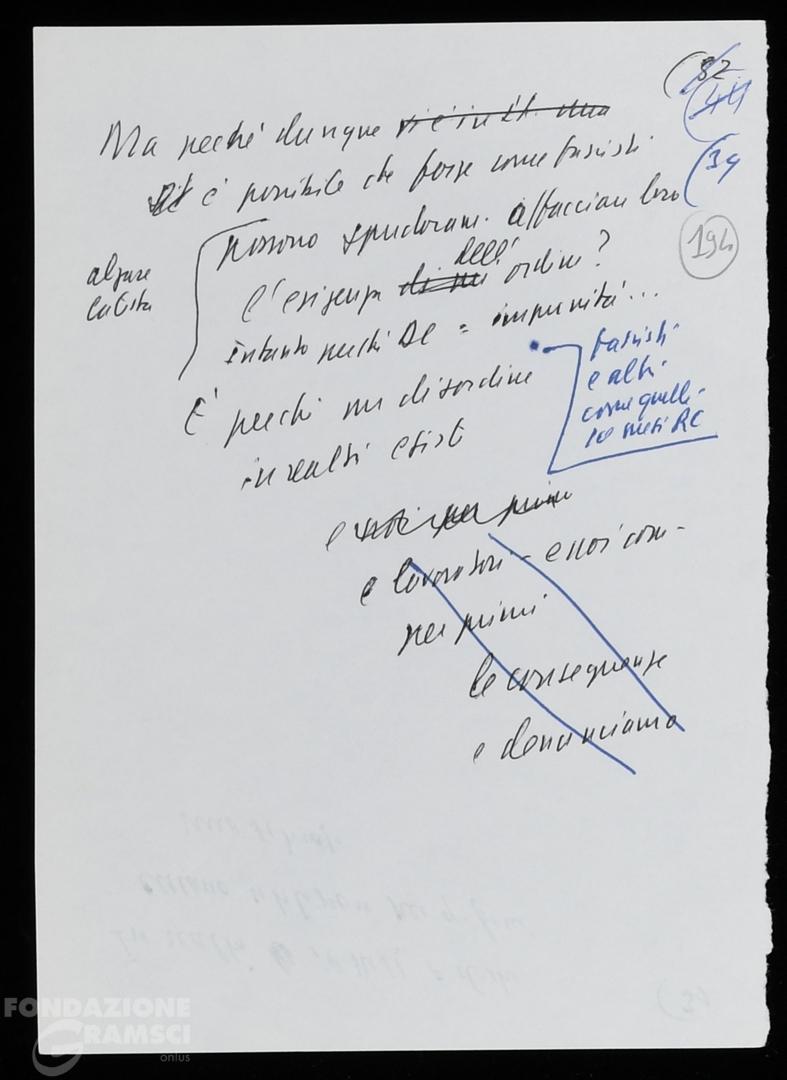 (32
(44
(34
194
Ma perché dunque
è possibile che forze come fascisti
possono spudoram. affacciare loro
alzare
la testa
l'esigenza dell' ordine?
Intanto perché DC = impunità...
fascisti
e altri
come quelli
RC
È perché un disordine
in realtà esiste
e noi per primi
e lavoratori - e noi com-
per primi
le conseguenze
e denunciamo
FONDAZIONE
GRAMSCI
onlus